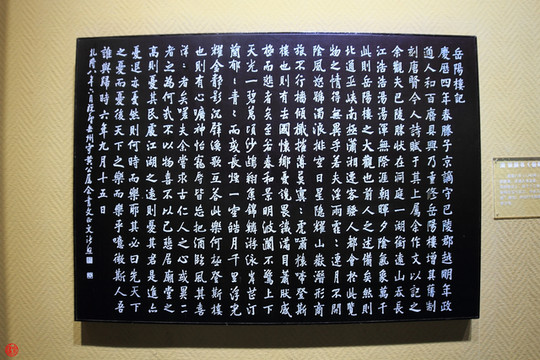 岳陽樓記
慶曆四年春滕子京謫守巴陵郡越明年政
通人和百廢具興乃重修岳陽樓增其舊制
刻唐賢今人詩賦于其上屬余作文以記之
余觀夫巴陵勝狀在洞庭一湖銜遠山吞長
江浩浩湯湯橫無際涯朝暉夕陰氣象萬千
此則岳陽樓之大觀也前人之述備矣然則
北通巫峽南極瀟湘遷客騷人多會於此覽
物之情得無異乎若夫淫雨霏霏連月不開
陰風怒號濁浪排空日星隱耀山嶽潛形商
旅不行檣傾楫摧薄暮冥冥虎嘯猿啼登斯
樓也則有去國懷鄉憂讒畏譏滿目蕭然感
極而悲者矣至若春和景明波瀾不驚上下
天光一碧萬頃沙鷗翔集錦鱗游泳岸芷汀
蘭郁郁青青而或長煙一空皓月千里浮光
耀金靜影沉璧漁歌互答此樂何極登斯樓
也則有心曠神怡寵辱皆忘把酒臨風其喜
洋洋者矣嗟夫余嘗求古仁人之心或異二
者之為何哉不以物喜不以己悲居廟堂之
高則憂其民處江湖之遠則憂其君是進亦
憂退亦憂然則何時而樂耶其必曰先天下
之憂而憂後天下之樂而樂乎噫微斯人吾
誰與歸時六年九月十五日
乾隆八年六月岳州守黃公屬余書